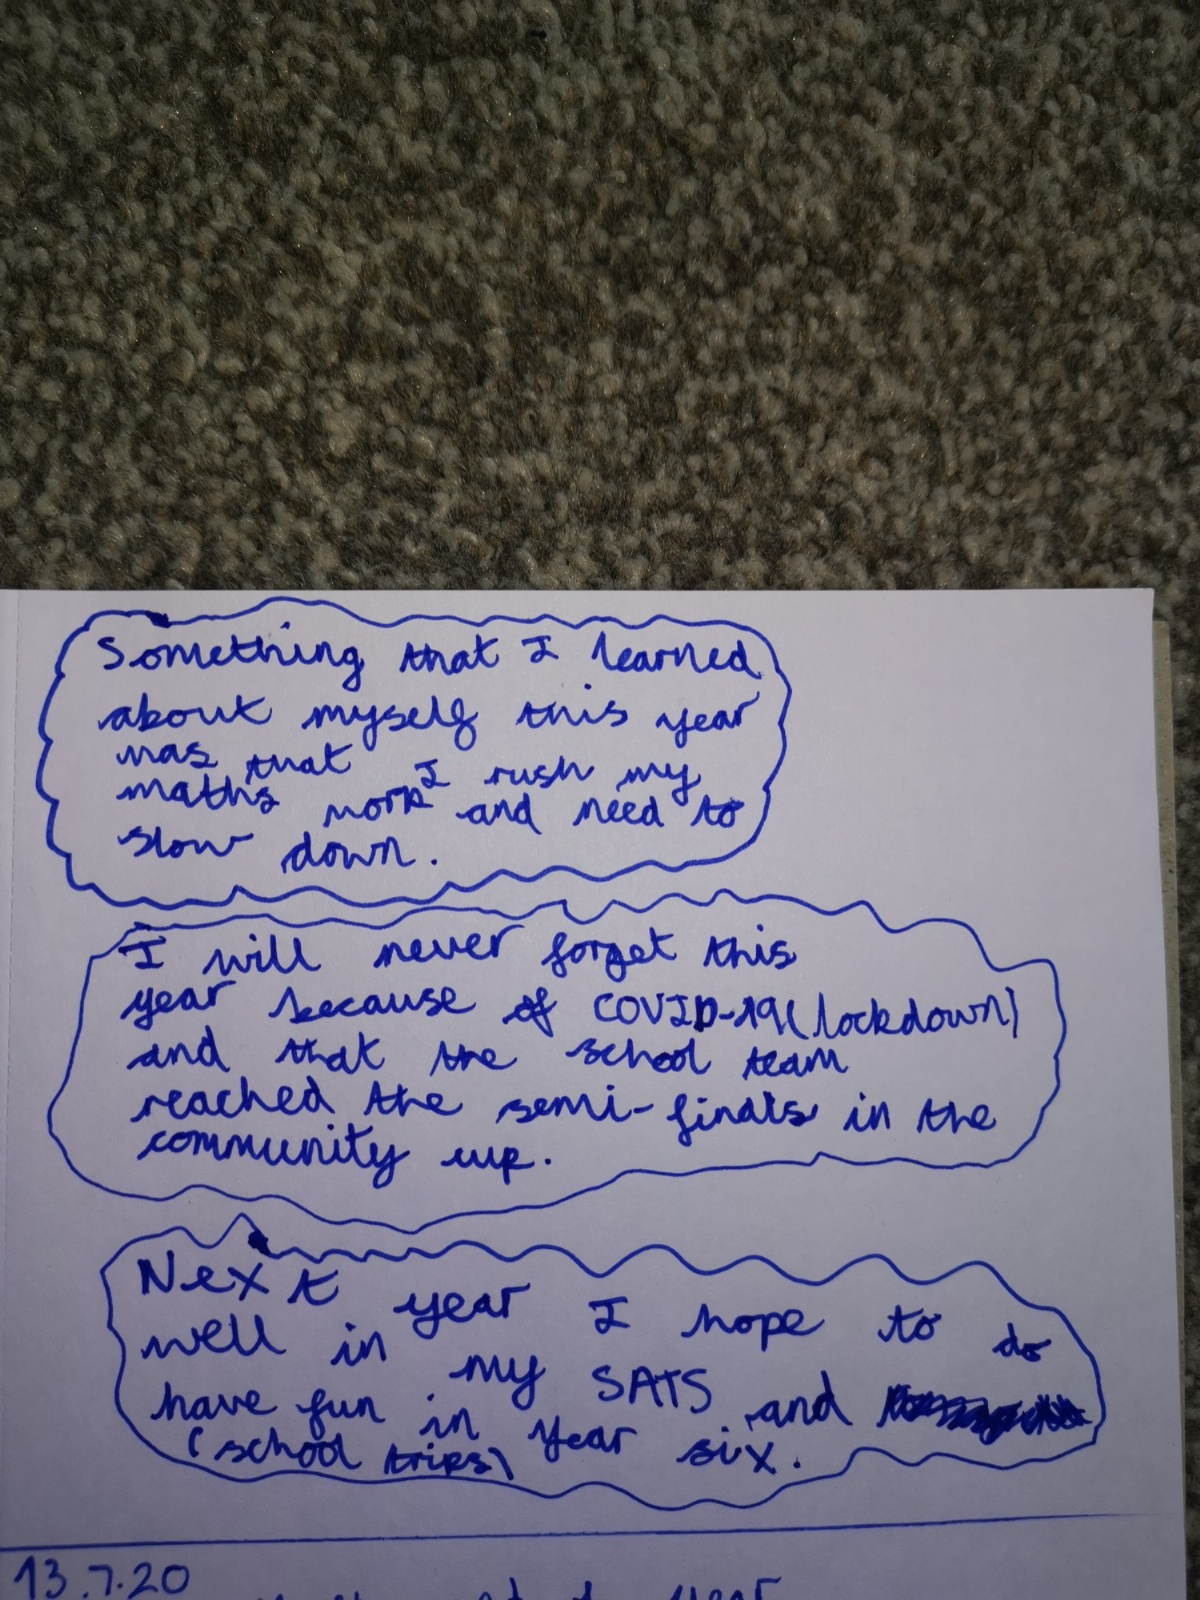 Something that I learned
about myself this year
was that I rush my
maths work and need to
slow down.
I will never forget this
year because of COVID-19 (lockdown)
and that the school team
reached the semi-finals in the
community cup.
Next year I hope to do
well in my SATS and
have fun in year six.
(school trips)
13.7.20
year